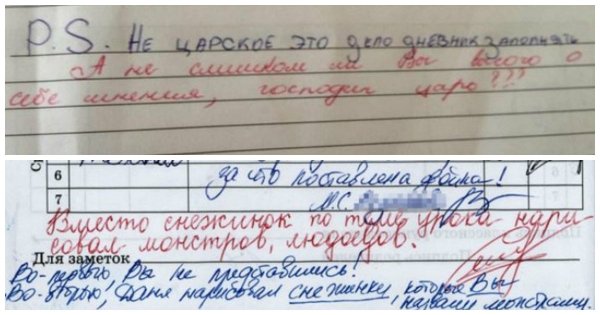 P.S. Не царское это дело дневник заполнять
А не слишком ли Вы высокого о
себе мнения, господин царь???
6
за что поставлена двойка!
7
Вместо снежинок по теме урока нари-
совал монстров, людоедов.
Для заметок
Во-первых, Вы не представились!
Во-вторых, Даня нарисовал снежинки, которые Вы
назвали монстрами.